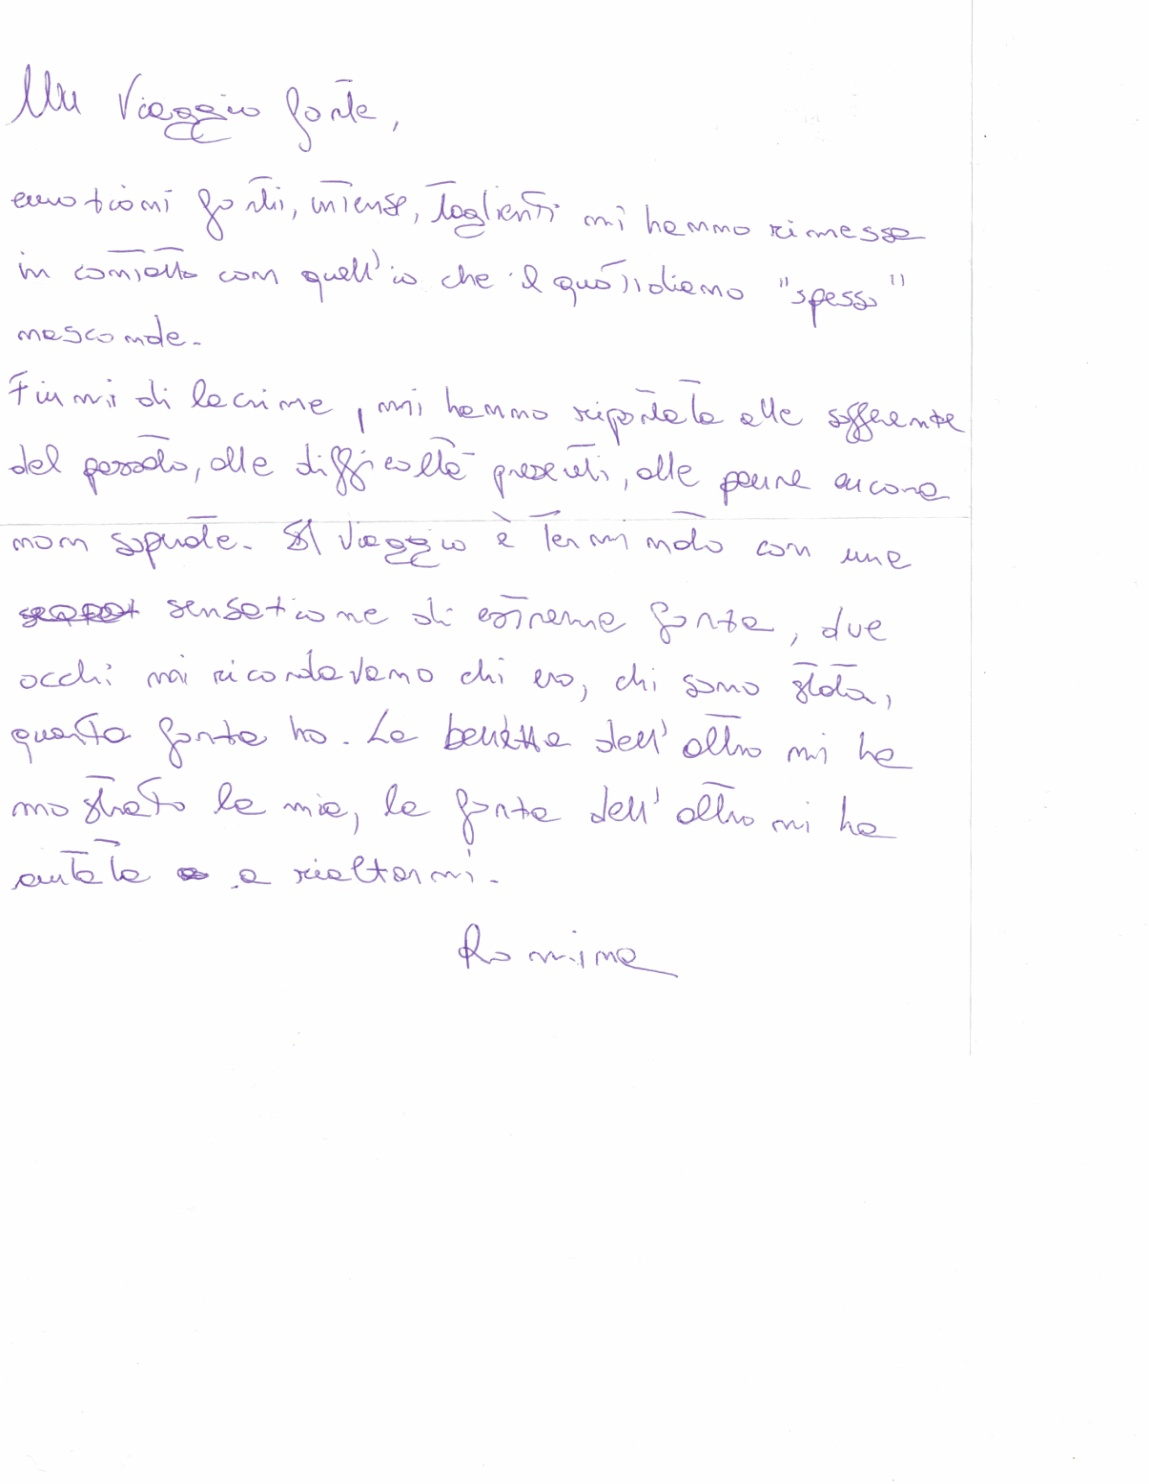 Un viaggio forte,
emozioni forti, intense, taglienti mi hanno rimessa
in contatto con quell'io che il quotidiano "spesso"
nasconde.
Fiumi di lacrime, mi hanno riportata alle sofferenze
del passato, alle difficoltà presenti, alle paure ancora
non sopite. Il viaggio è terminato con una
sensazione di estrema forza, due
occhi mi ricordavano chi ero, chi sono stata,
quanta forza ho. La bellezza dell'altro mi ha
mostrato la mia, la forza dell'altro mi ha
aiutata a rialzarmi.
Romina